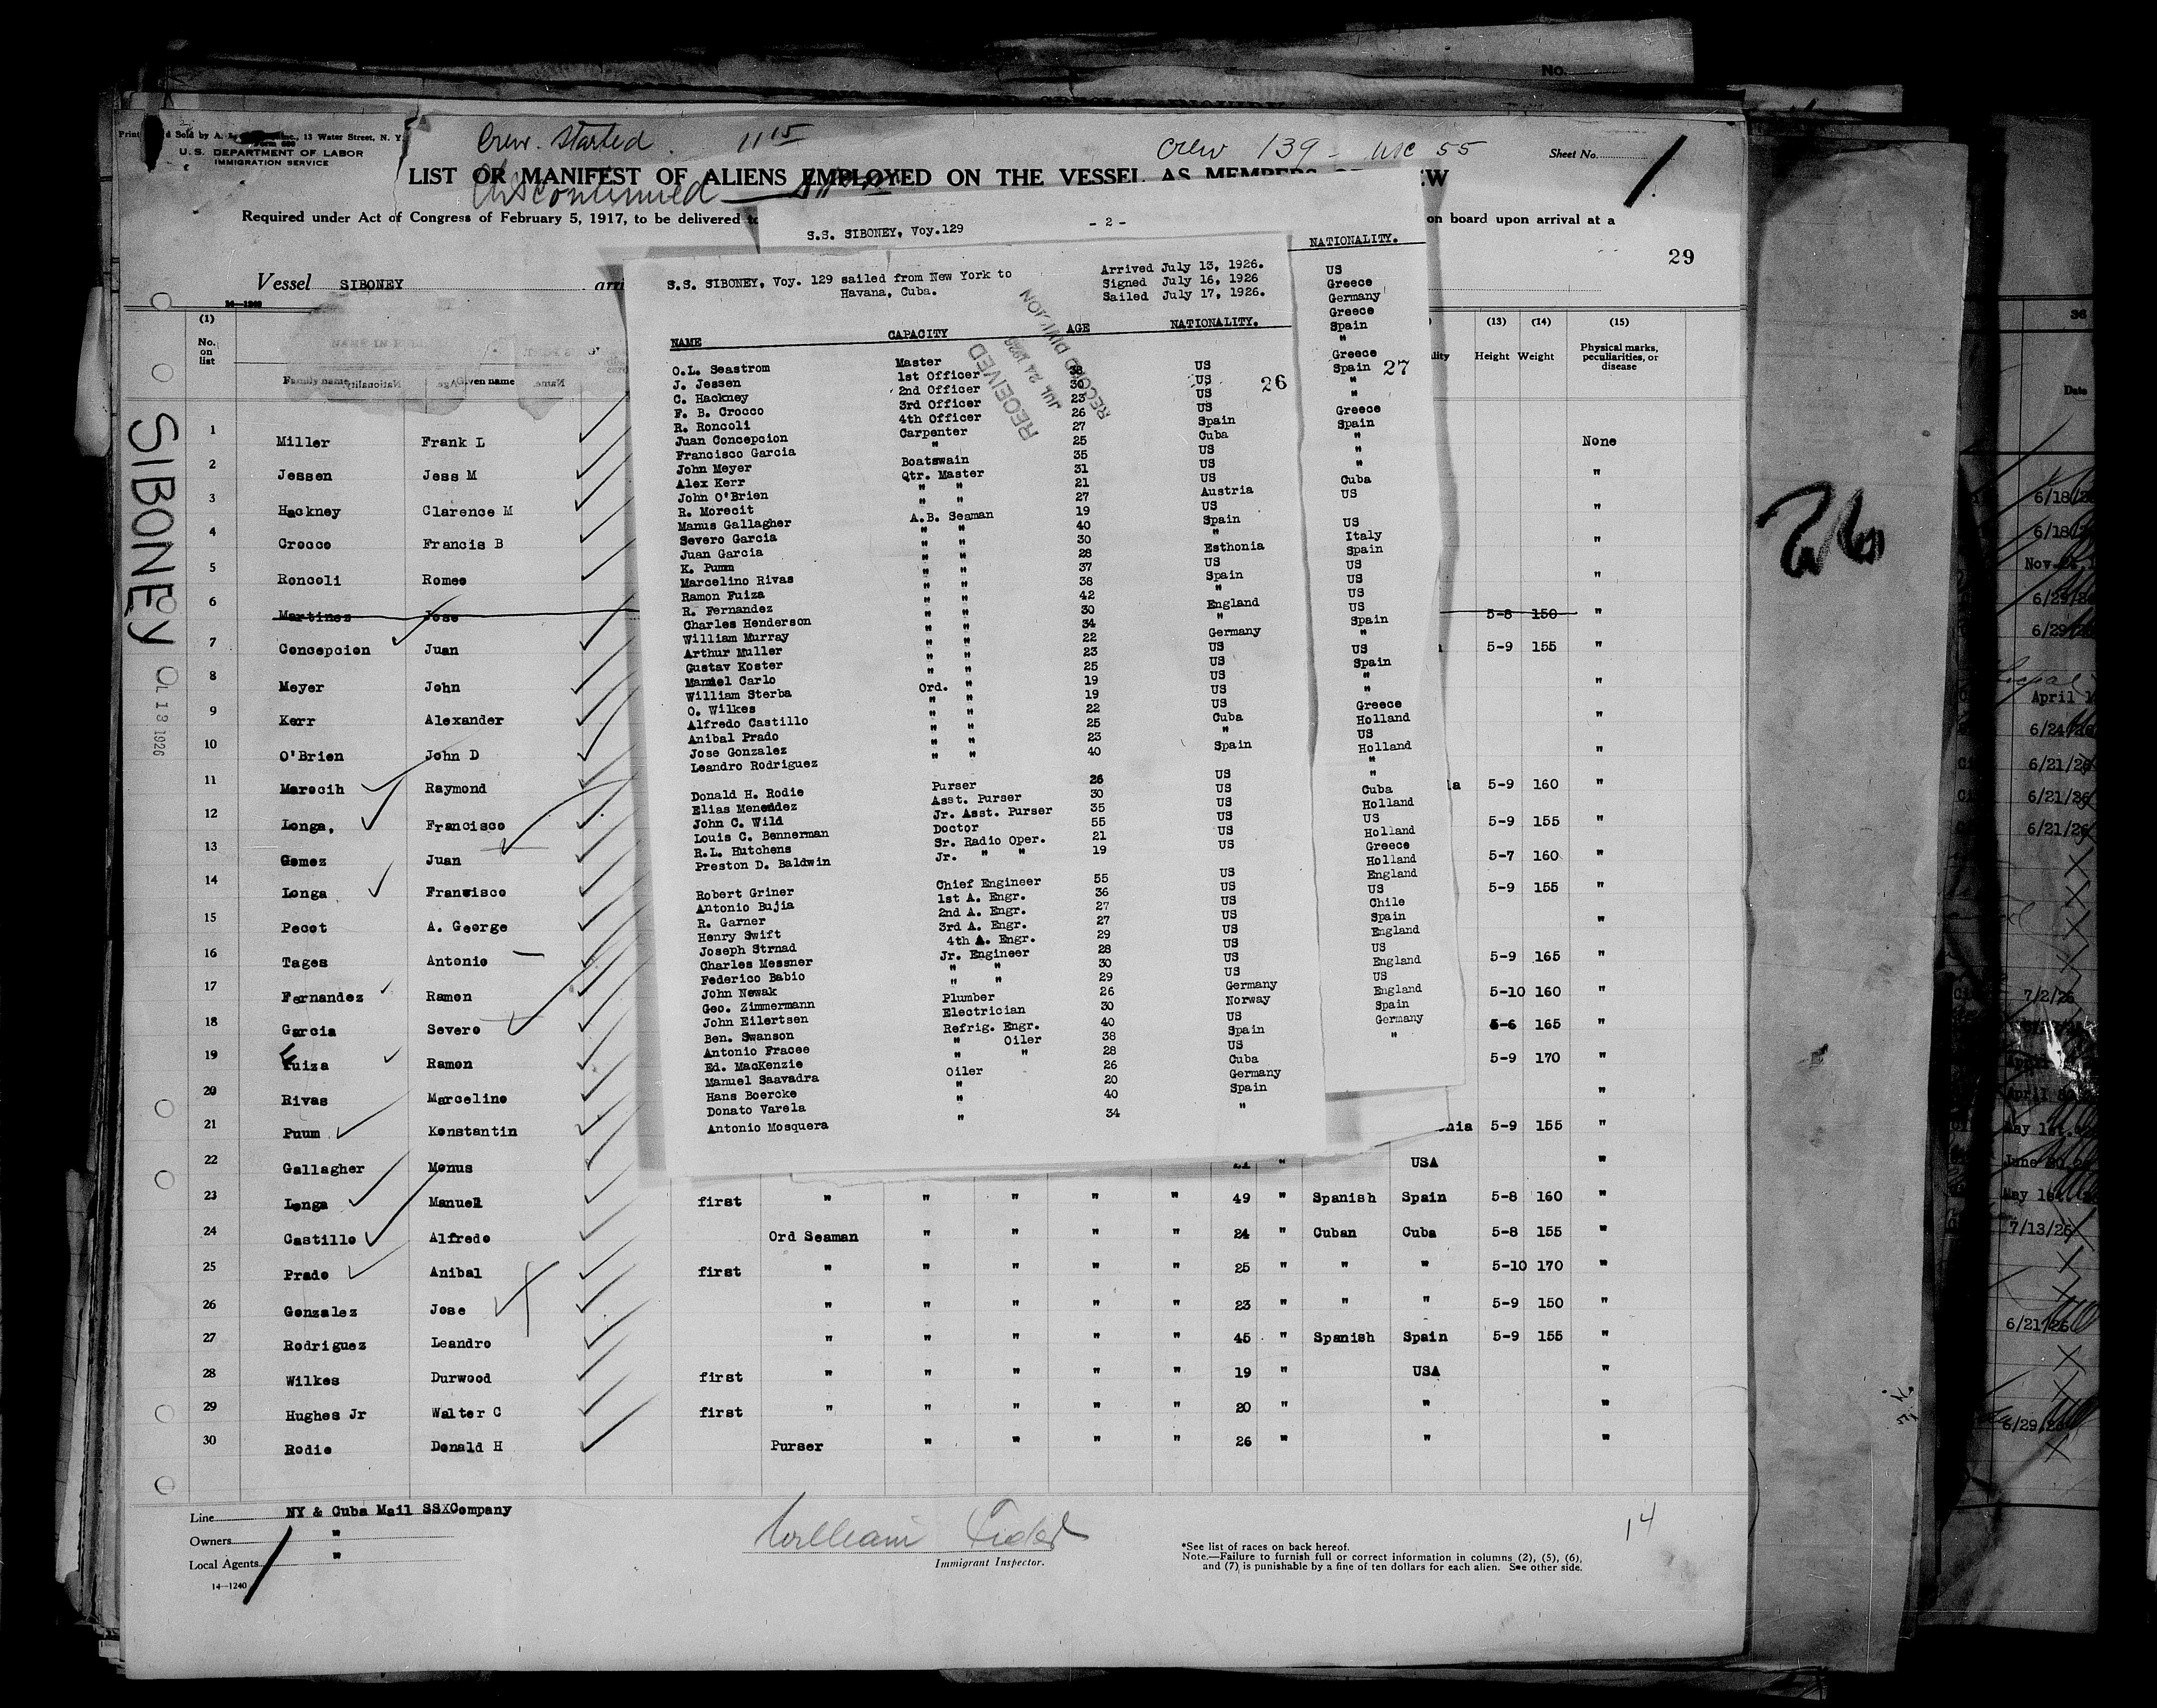 No.
Crew. Started 11 15
Crew 139 - USC 55
Sold by A.
Inc., 13 Water Street, N. Y.
U.S. DEPARTMENT OF LABOR
IMMIGRATION SERVICE
Sheet No. 1
LIST OR MANIFEST OF ALIENS EMPLOYED ON THE VESSEL AS MEMBERS OF CREW
Discontinued
Required under Act of Congress of February 5, 1917, to be delivered to
on board upon arrival at a
29
Vessel SIBONEY
14-1240
(1) No. on list
Family name Given name
(13) Height (14) Weight (15) Physical marks, peculiarities, or disease
SIBONEY
1 Miller Frank L None
2 Jessen Jess M "
3 Hackney Clarence M "
4 Crocco Francis B "
5 Roncoli Romeo "
6 Martinez Jose 5-8 150 "
7 Concepcion Juan 5-9 155 "
8 Meyer John "
9 Kerr Alexander "
10 O'Brien John D "
11 Marocih Raymond 5-9 160 "
12 Longa, Francisco 5-9 155 "
13 Gomez Juan 5-7 160 "
14 Longa Francisco 5-9 155 "
15 Pecot A. George "
16 Tages Antonio 5-9 165 "
17 Fernandez Ramon 5-10 160 "
18 Garcia Severo 5-6 165 "
19 Fuiza Ramon 5-9 170 "
20 Rivas Marcelino "
21 Puum Konstantin 5-9 155 "
22 Gallagher Monus 21 " USA "
23 Longa Manuel first " " " " " 49 " Spanish Spain 5-8 160 "
24 Castillo Alfredo Ord Seaman " " " " 24 " Cuban Cuba 5-8 155 "
25 Prado Anibal first " " " " " 25 " " " 5-10 170 "
26 Gonzalez Jose " " " " " 23 " " " 5-9 150 "
27 Rodriguez Leandro " " " " " 45 " Spanish Spain 5-9 155 "
28 Wilkes Durwood first " " " " " 19 " USA "
29 Hughes Jr Walter C first " " " " " 20 " " "
30 Rodie Donald H Purser " " " " 26 " " "
Line NY & Cuba Mail SSXCompany
Owners "
Local Agents "
14-1240
Immigrant Inspector.
*See list of races on back hereof.
Note.—Failure to furnish full or correct information in columns (2), (5), (6),
and (7) is punishable by a fine of ten dollars for each alien. See other side.
14
S.S. SIBONEY, Voy.129 - 2 -
NATIONALITY.
US
Greece
Germany
Greece
Spain
"
Greece
Spain 27
"
"
Greece
Spain
"
"
"
Cuba
US
US
Italy
Spain
US
US
US
US
Spain
"
US
Spain
"
"
Greece
Holland
US
Holland
"
"
Cuba
Holland
US
Holland
Greece
Holland
England
US
Chile
Spain
England
US
England
US
England
Spain
Germany
"
S.S. SIBONEY, Voy. 129 sailed from New York to
Havana, Cuba.
Arrived July 13, 1926.
Signed July 16, 1926
Sailed July 17, 1926.
RECEIVED
JUL 21 1926
RECORD DIVISION
26
NAME CAPACITY AGE NATIONALITY.
O.L. Seastrom Master 38 US
J. Jessen 1st Officer 30 US
C. Hackney 2nd Officer 23 US
F. B. Crocco 3rd Officer 26 US
R. Roncoli 4th Officer 27 Spain
Juan Concepcion Carpenter 25 Cuba
Francisco Garcia " 35 US
John Meyer Boatswain 31 US
Alex Kerr Qtr. Master 21 US
John O'Brien " " 27 Austria
R. Morecit " " 19 US
Manus Gallagher A.B. Seaman 40 Spain
Severo Garcia " " 30 "
Juan Garcia " " 28 Esthonia
K. Pumm " " 37 US
Marcelino Rivas " " 38 Spain
Ramon Fuiza " " 42 "
R. Fernandez " " 30 England
Charles Henderson " " 34 "
William Murray " " 22 Germany
Arthur Muller " " 23 US
Gustav Koster " " 25 US
Manuel Carlo " " 19 US
William Sterba Ord. " 19 US
O. Wilkes " " 22 US
Alfredo Castillo " " 25 Cuba
Anibal Prado " " 23 "
Jose Gonzalez " " 40 Spain
Leandro Rodriguez " "
Donald H. Rodie Purser 26 US
Elias Menendez Asst. Purser 30 US
John C. Wild Jr. Asst. Purser 35 US
Louis C. Bennerman Doctor 55 US
R.L. Hutchens Sr. Radio Oper. 21 US
Preston D. Baldwin Jr. " " 19 US
Robert Griner Chief Engineer 55 US
Antonio Bujia 1st A. Engr. 36 US
R. Garner 2nd A. Engr. 27 US
Henry Swift 3rd A. Engr. 27 US
Joseph Strnad 4th A. Engr. 29 US
Charles Messner Jr. Engineer 28 US
Federico Babio " " 30 US
John Newak " " 29 US
Geo. Zimmermann Plumber 26 Germany
John Eilertsen Electrician 30 Norway
Ben. Swanson Refrig. Engr. 40 US
Antonio Fracee " Oiler 38 Spain
Ed. MacKenzie " " 28 US
Manuel Saavadra Oiler 26 Cuba
Hans Boercke " 20 Germany
Donato Varela " 40 Spain
Antonio Mosquera " 34 "
26
36
Date
6/18/26
6/18/26
6/29/26
6/29/26
April 1
6/24/26
6/21/26
6/21/26
6/21/26
7/2/26
May 1st
June 30, 26
May 1st
7/13/26
6/21/26
6/29/26